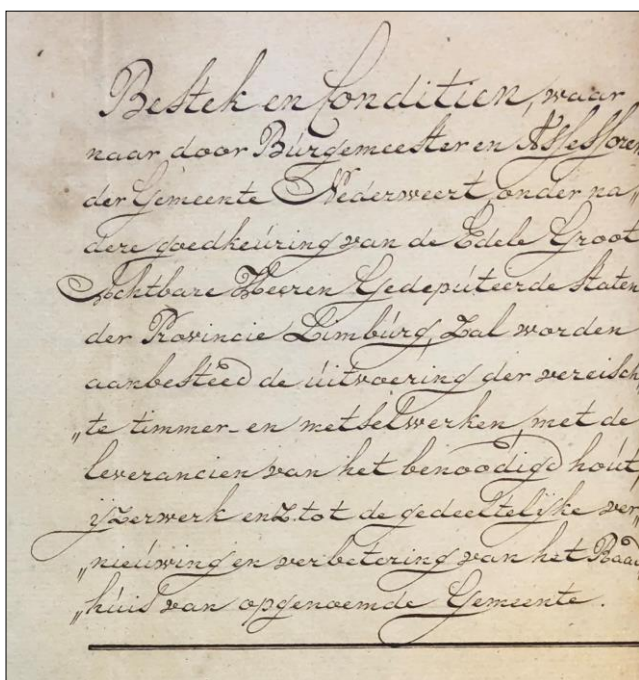 Bestek en Conditien, waar
naar door Burgemeester en Assessoren
der Gemeente Nederweert, onder na„
dere goedkeuring van de Edele Groot
Achtbare Heeren Gedeputeerde Staten
der Provincie Limburg, Zal worden
aanbesteed de uitvoering der vereisch
„te timmer- en metselwerken, met de
leverancien van het benoodigd hout,
ijzerwerk enz. tot de gedeeltelijke ver„
„nieuwing en verbetering van het Raad
„huis van opgenoemde Gemeente.